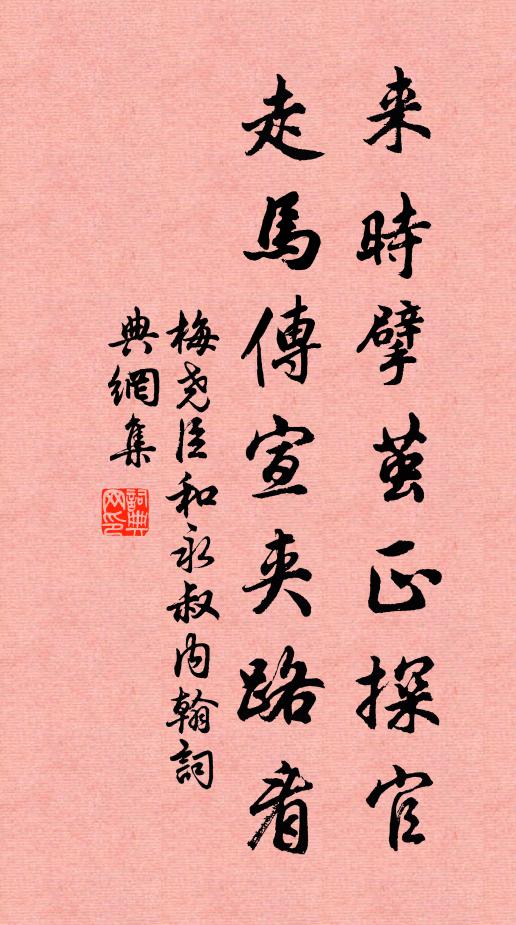 来時擘茧正探官
走馬傳宣夾路看
梅尧臣和永叔内翰詞
典網集
詞典網印